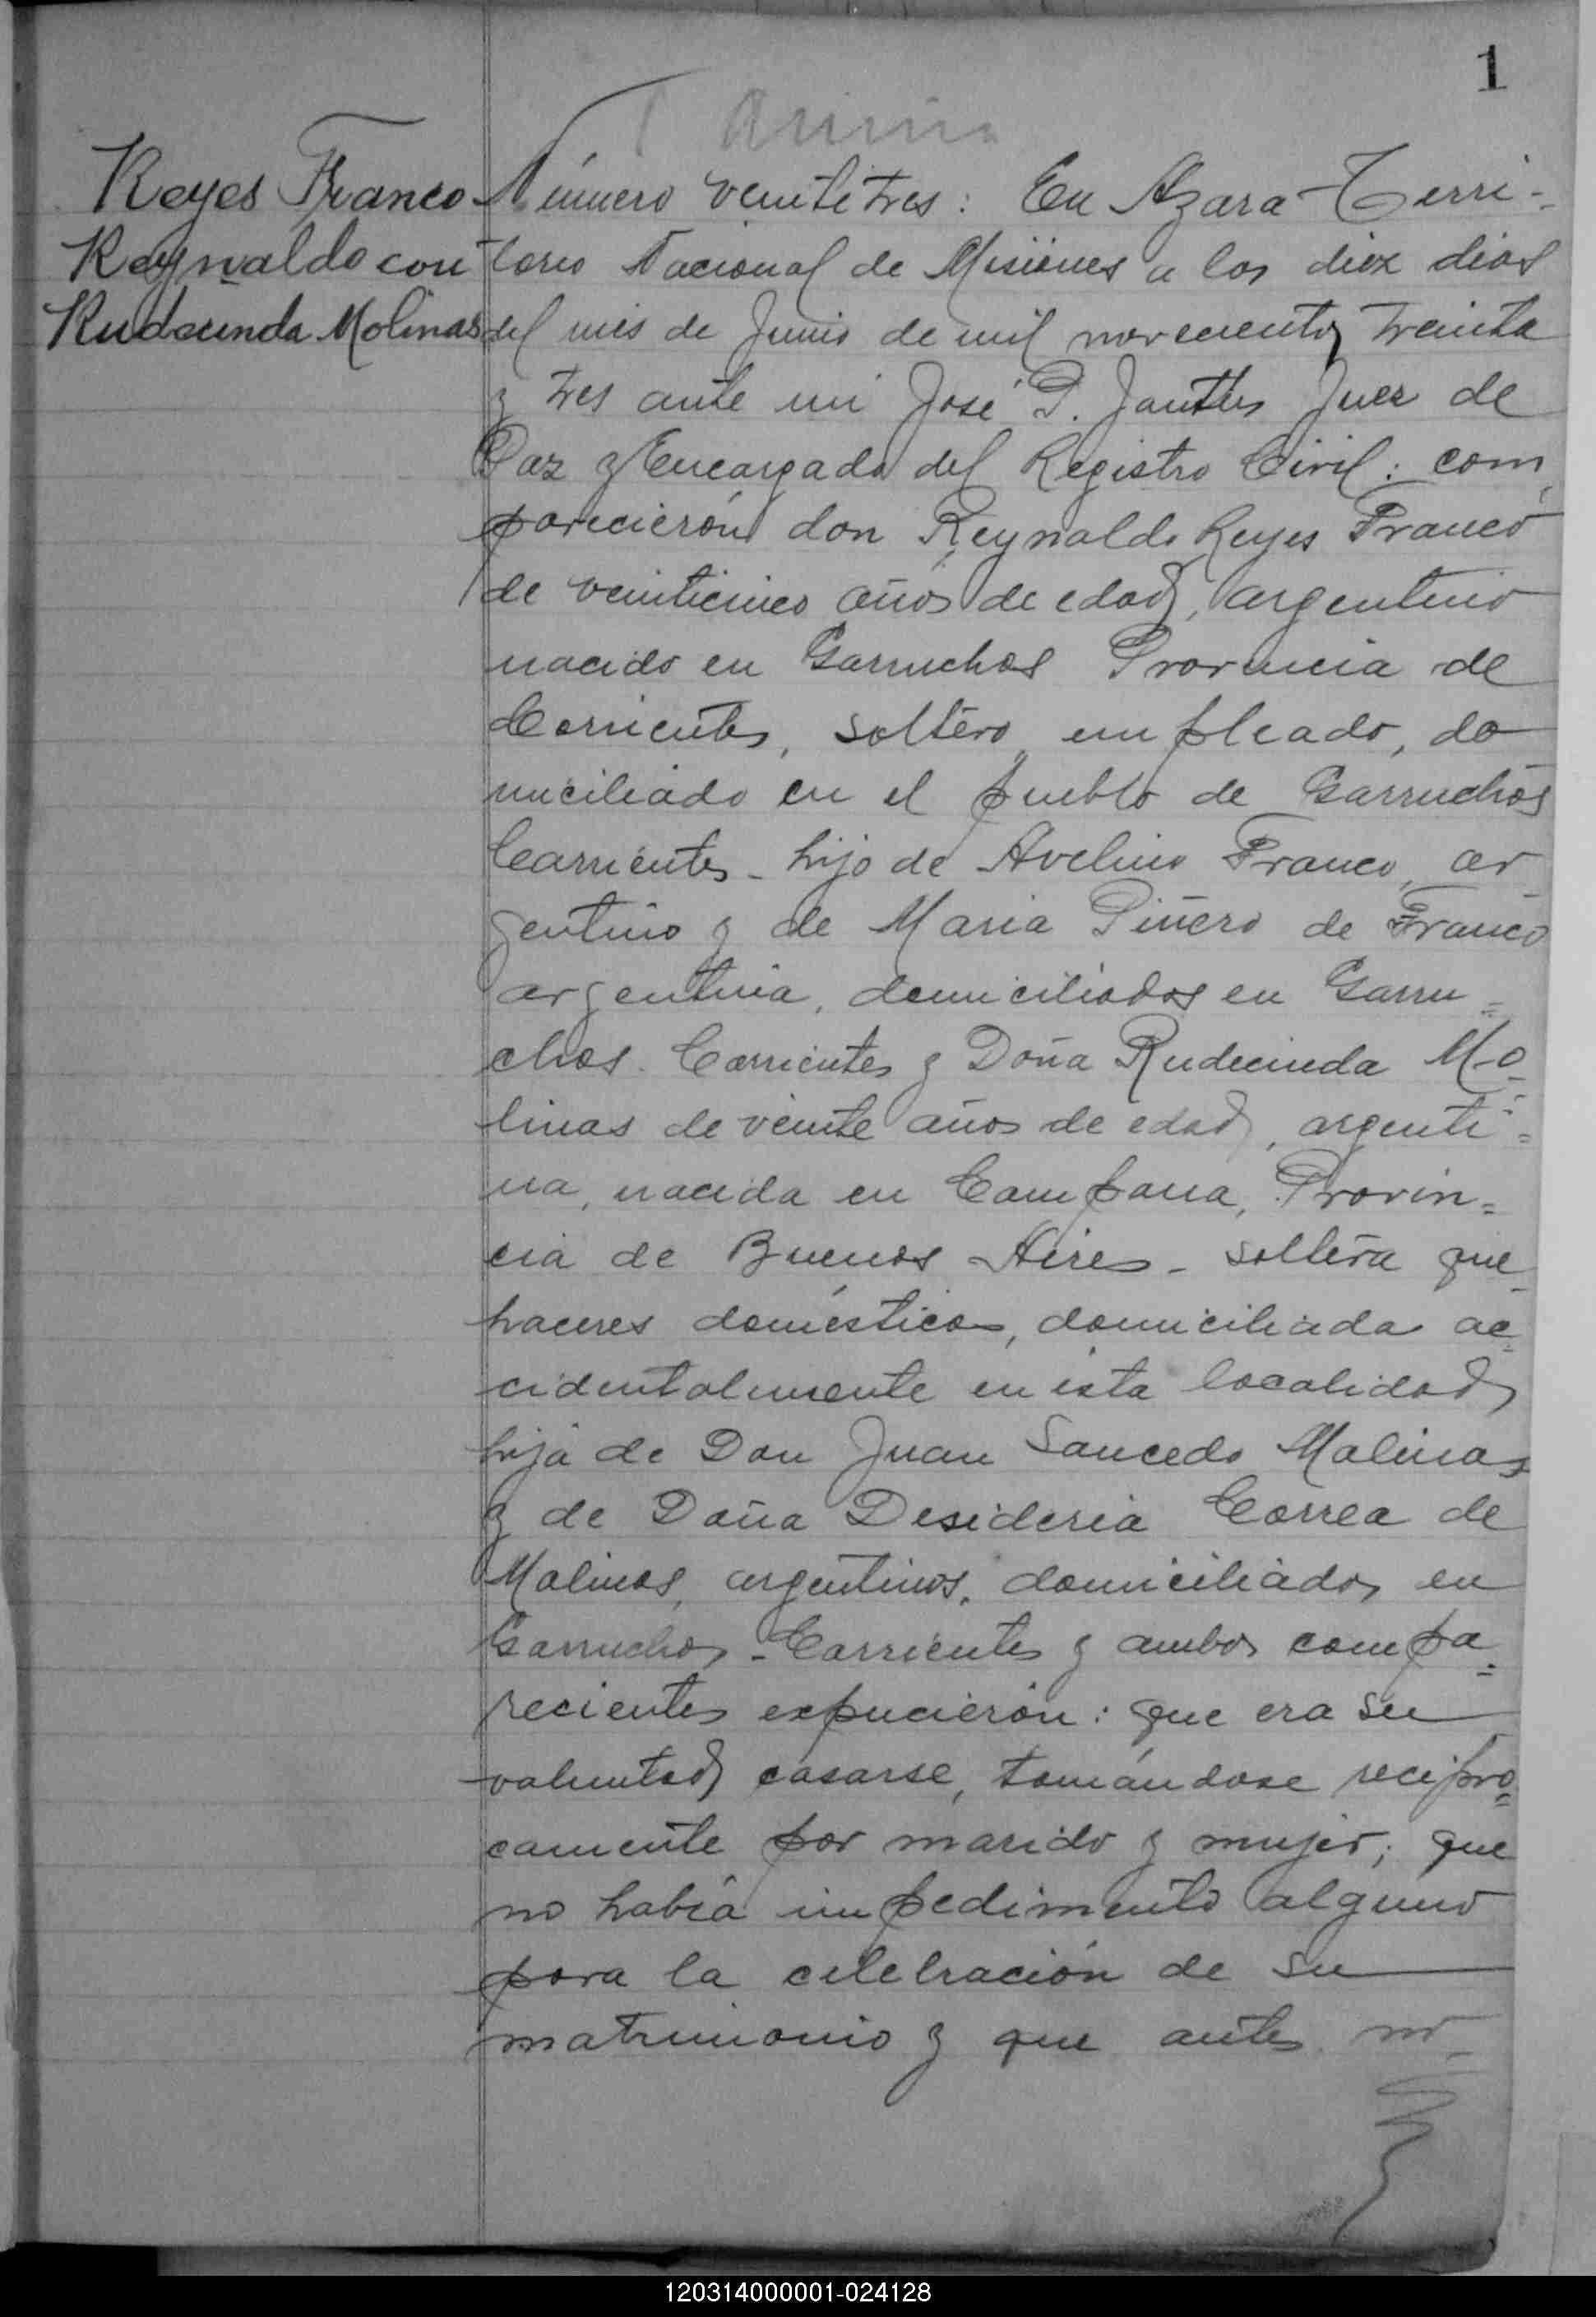 1
Reyes Franco
Reynaldo con
Rudecinda Molinas
Número veintitres: En Azara-Terri-
torio Nacional de Misiones a los diez dias
del mes de Junio de mil novecientos treinta
y tres ante mi José P. Juez de
Paz y Encargado del Registro Civil: com
parecierón don Reynaldo Reyes Franco
de veinticinco años de edad, argentino
nacido en Garruchos Provincia de
Corrientes, soltero, empleado, do
miciliado en el pueblo de Garruchos
Corrientes - hijo de Avelino Franco, ar
gentino y de Maria Piñero de Franco
argentina, domiciliados en Garru=
chos. Corrientes y Doña Rudecinda Mo
linas de veinte años de edad, argenti=
na, nacida en Campana, Provin=
cia de Buenos Aires - soltera que
haceres domésticos, domiciliada ac
cidentalmente en esta localidad,
hija de Don Juan Saucedo Molinas
y de Doña Desideria Correa de
Molinas, argentinos, domiciliados en
Garruchos - Corrientes y ambos compa=
recientes expucierón: que era su
voluntad casarse, tomándose recipro=
camente por marido y mujer; que
no había impedimento alguno
para la celebración de su
matrimonio y que antes no
120314000001-024128